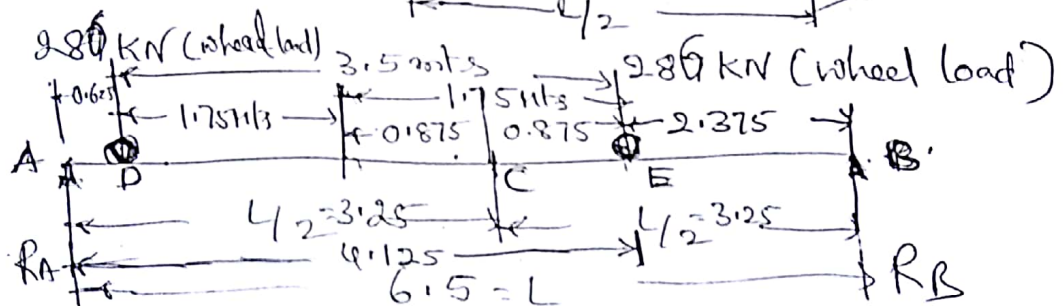 L/2
286 KN (wheel load) 3.5 mts 286 KN (wheel load)
0.625 1.75 mts 1.75 mts
0.875 0.875 2.375
A D C E B
L/2 = 3.25 L/2 = 3.25
RA 4.125 RB
6.5 = L